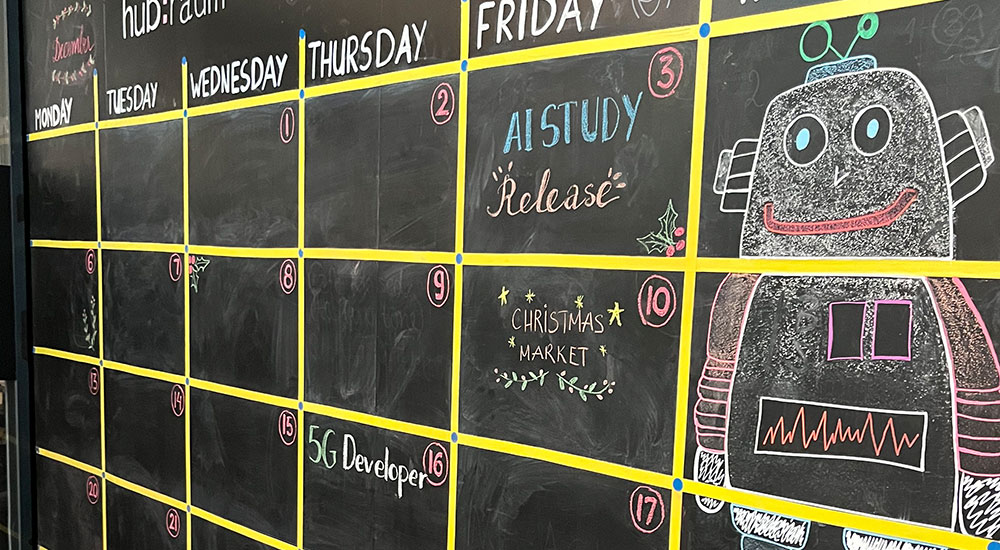 December
hub:raum
MONDAY
TUESDAY
WEDNESDAY
THURSDAY
FRIDAY
1
2
3
AI STUDY
Release
6
7
8
9
10
CHRISTMAS
MARKET
13
14
15
5G Developer
16
17
20
21